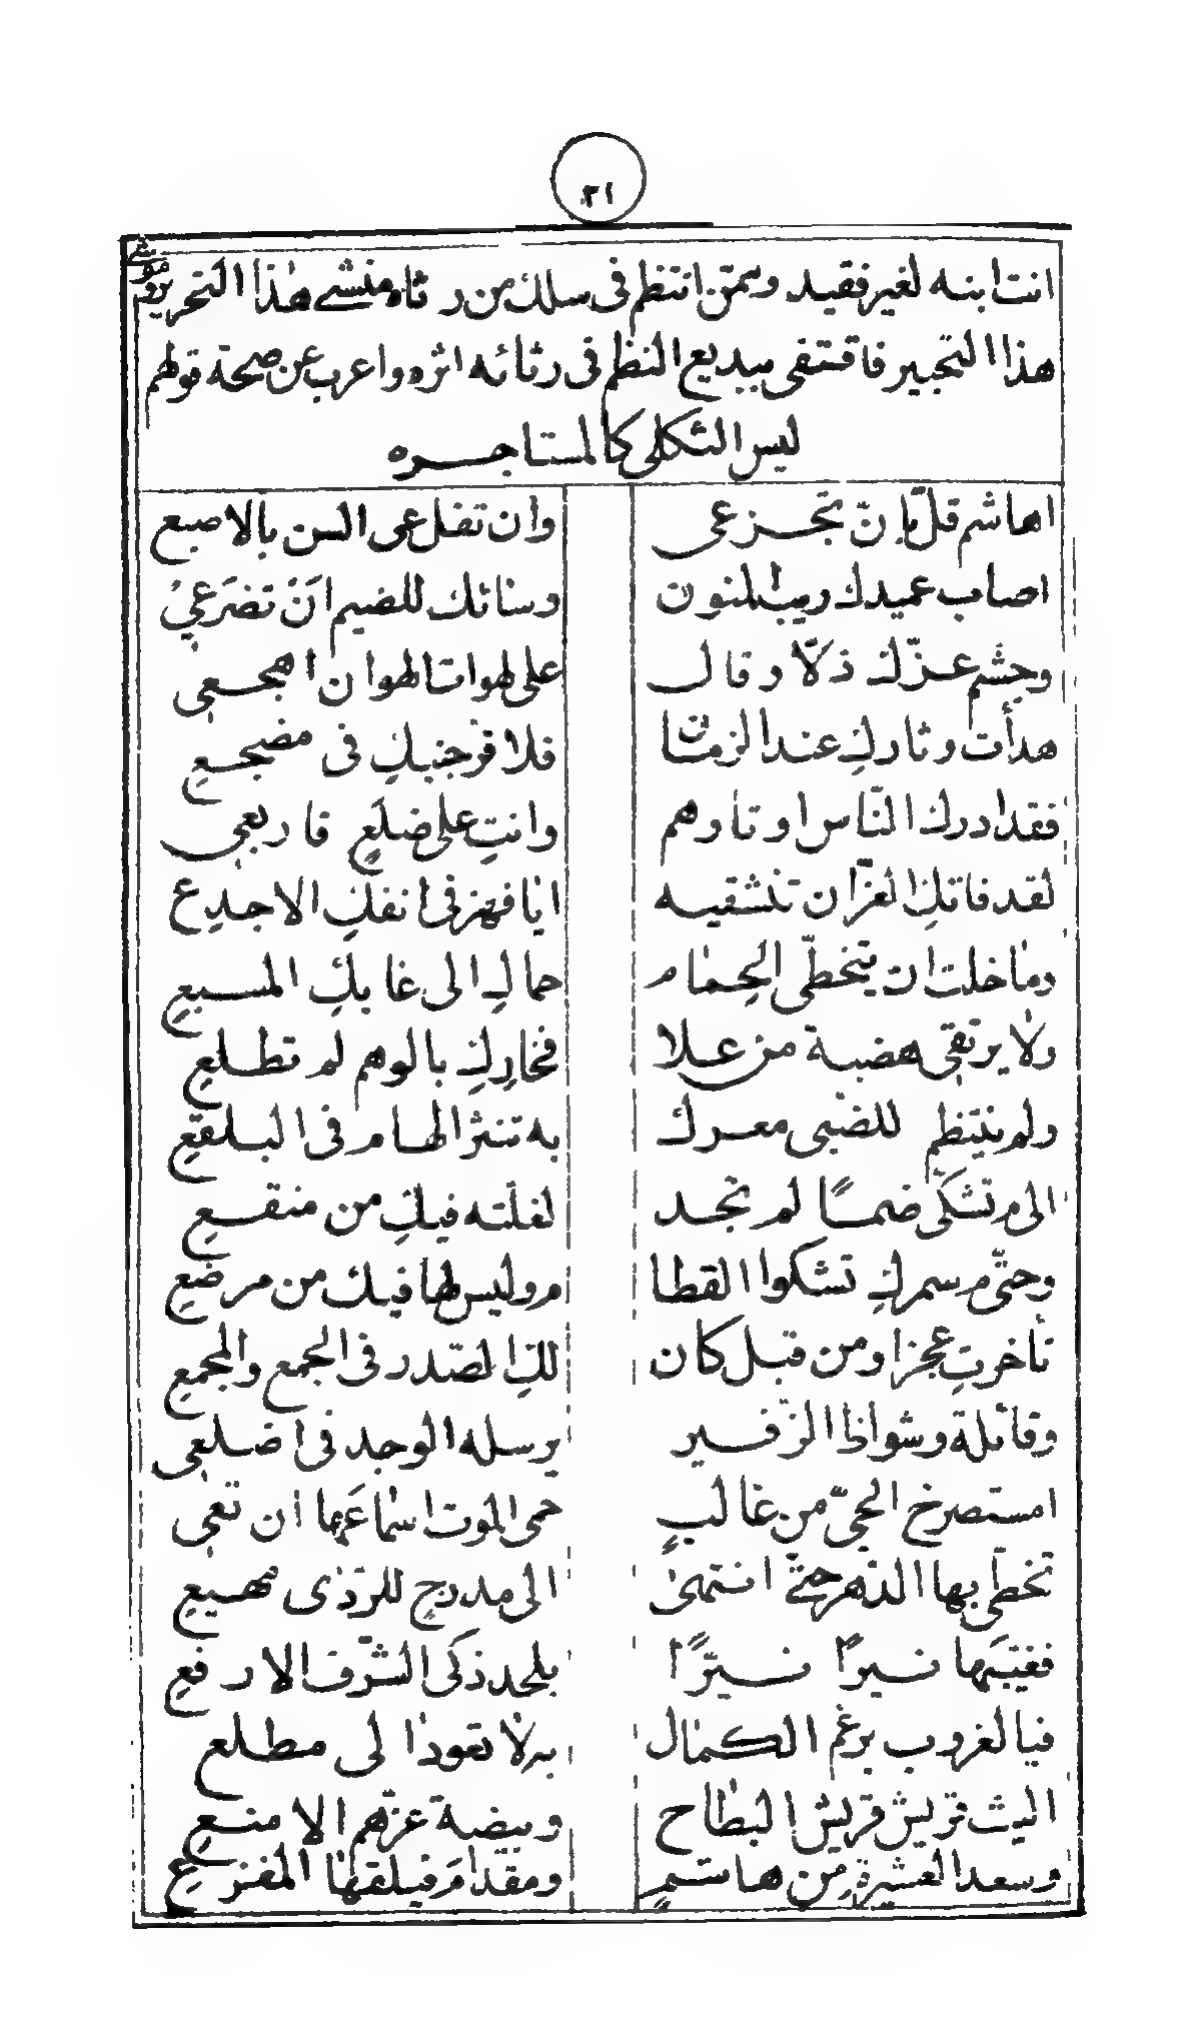 ٣١
انت ابنه لغير فقيد وممّن انتظم فى سلك من رثاه منشے هٰذا التحرير وموشى برود
هذا التحبير فاقتفى ببديع النظم فى رثائه اثره واعرب عن صحة قولهم
ليس الثكلى كالمستاجره
اهاشم قلّ بان تجزعى وان تفلعى السن بالاصبع
اصاب عميدك ريب المنون وسائك للضيم اَنْ تضرَعيْ
وجشم عزّك ذلّا وقال على لهوات الهوان اهجعى
هدأت وثارك عند الزمان فلا قرّ جنبكِ فى مضجعِ
فقد ادرك النّاس اوتاوهم وانتِ على ضلَعٍ فاربعى
لقد فاتكِ العزّ ان تنشقيه ايا فهر فى انفكِ الاجدع
وما خلت ان يتخطّى الحِمام حماكِ الى غابكِ المسبعِ
ولا يرتقى هضبة من علا فخاركِ بالوهم لم تطلعِ
ولم ينتظم للضبى معرك به تنثر الهام فى البلقعِ
الى م تشكّى ضمًا لم تجد لغلّته فيكِ من منقعِ
وحتّى م سمركِ تشكوا القطا م وليس لها فيك من مرضعِ
تأخرتِ عجزا ومن قبل كان لكِ الصّدر فى الجمع والمجمعِ
وقائلة وشواظ الزّفير يرسله الوجد فى اضلعى
امستصرخ الحيّ من غالبٍ حمى الموت اسماعَها ان تعى
تخطّى بها الدّهر حتّى انتهىٰ الى مدرجٍ للردىٰ مهيعِ
فغيّبها نيرًا نيّرًا بلحد ذكى الشّرف الارفعِ
فيا لغروب برغم الكمال به لا تعود الى مطلع
اليث قريش قريش البطاح وبيضة عزّهم الامنعِ
وسعد العشيرة من هاشمٍ ومقدام فيلقها المفزعِ